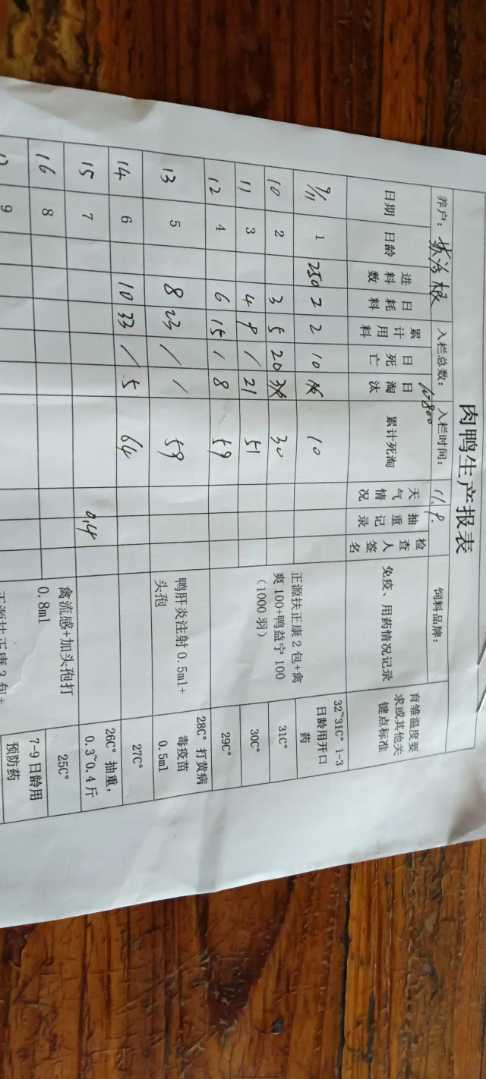 肉鸭生产报表
养户： 根 入栏总数： 10800 入栏时间： 11.9. 饲料品牌：
日期 日龄 进料数 日耗料 累计用料 日死亡 日淘汰 累计死淘 天气情况 抽重记录 检查人签名 免疫、用药情况记录 育雏温度要求或其他关键点标准
9/11 1 250 2 2 10 10 正源扶正康2包+禽爽100+鸭益宁100（1000羽） 32~31C° 1-3日龄用开口药
10 2 3 5 20 30 31C°
11 3 4 9 / 21 51 30C°
12 4 6 15 / 8 59 29C°
13 5 8 23 / / 59 鸭肝炎注射0.5ml+头孢 28C° 打黄病毒疫苗0.5ml
14 6 10 33 / 5 64 27C°
15 7 0.4 26C° 抽重，0.3~0.4斤
16 8 禽流感+加头孢打0.8ml 25C°
9 正源扶正康2包+ 7-9日龄用预防药